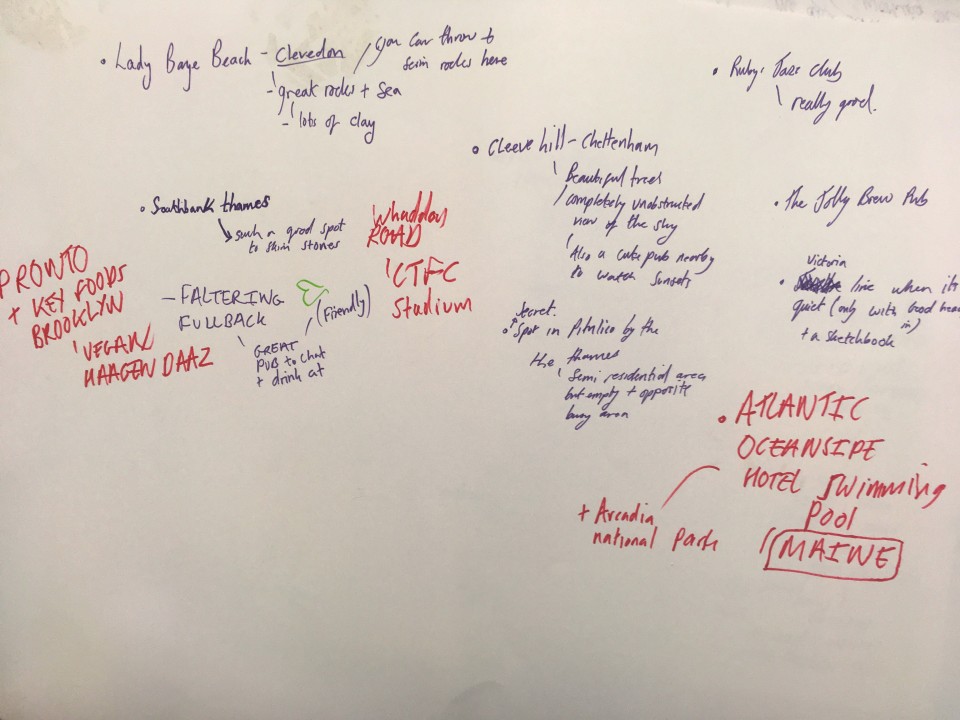 • Lady Baye Beach - Clevedon
you can throw +
skim rocks here
- great rocks + sea
- lots of clay
• Ruby's Jazz club
really good.
• Cleeve hill - Cheltenham
Beautiful trees
completely unobstructed
view of the sky
Also a cute pub nearby
to watch sunsets
• The Jolly Brew Pub
• Southbank thames
such a good spot
to skim stones
Whaddon
ROAD
CTFC
Stadium
PRONTO
+ KEY FOODS
BROOKLYN
VEGAN
HAAGEN DAAZ
- FALTERING
FULLBACK
(friendly)
GREAT
PUB to chat
+ drink at
Victoria
• line when its
quiet (only with
in)
+ a sketchbook
secret
• Spot in Pimlico by the
the thames
Semi residential area
but empty + opposite
busy area
• ATLANTIC
OCEANSIDE
HOTEL Swimming
Pool
MAINE
+ Arcadia
national Park